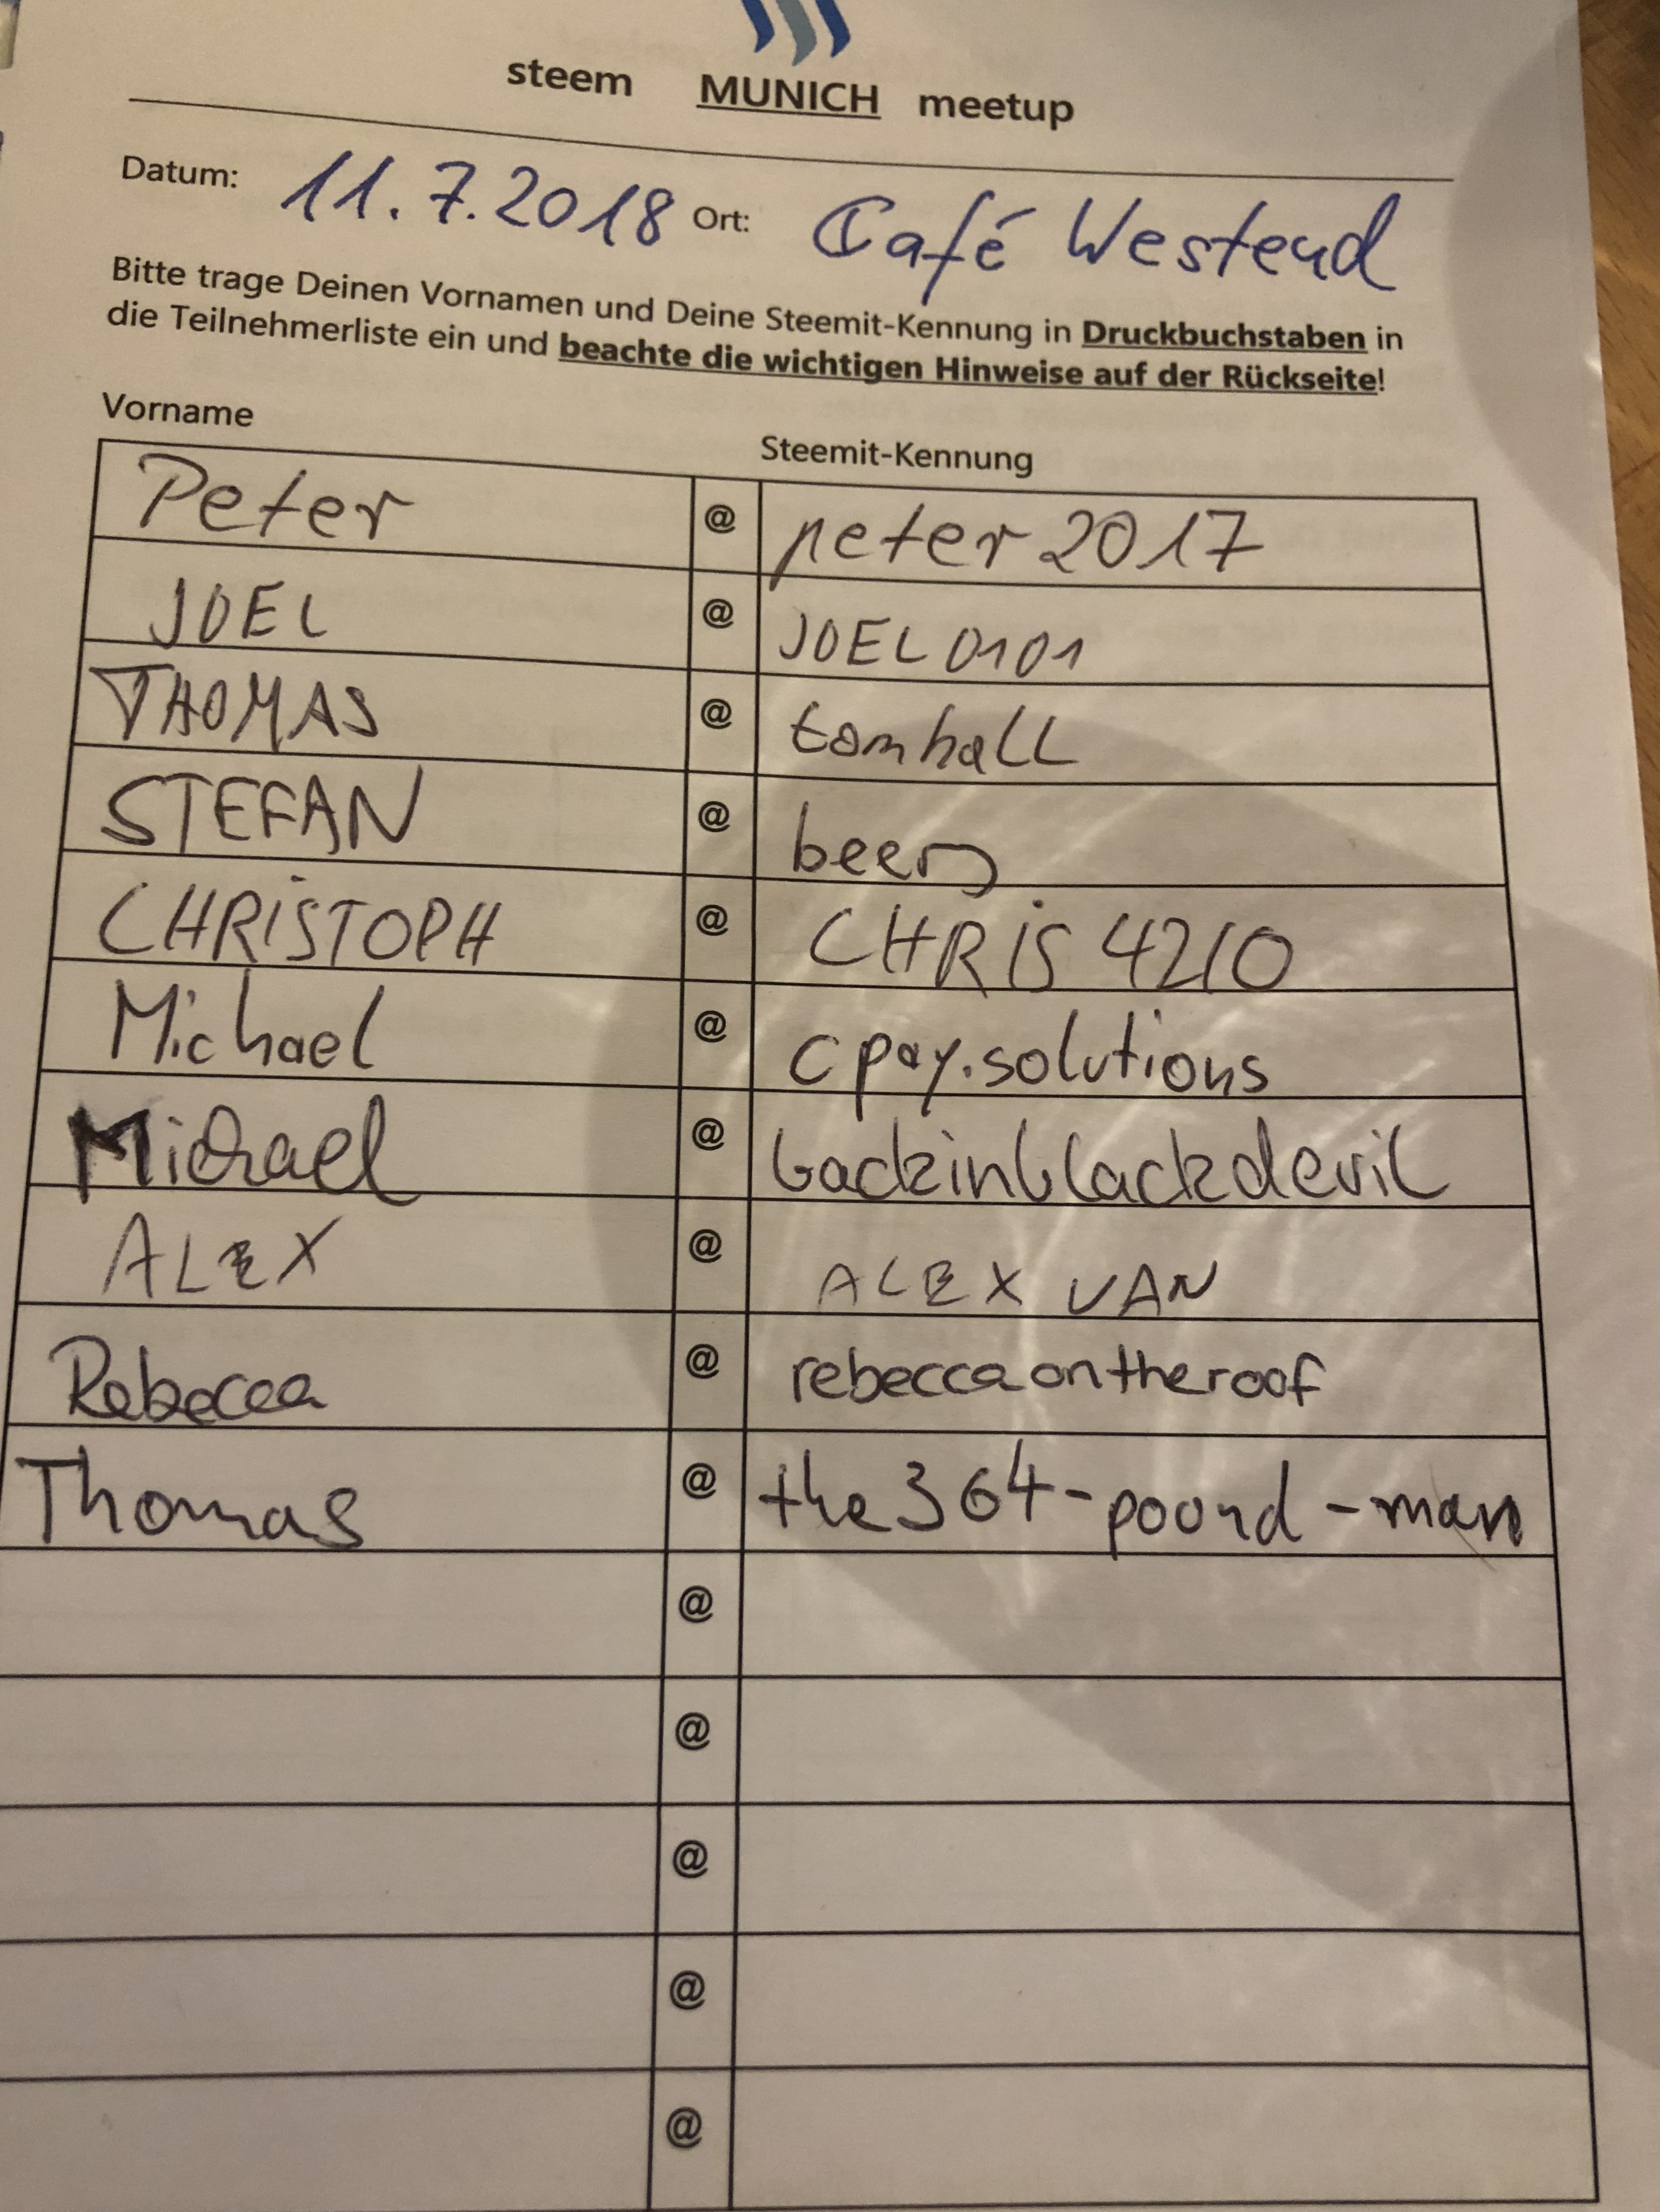 steem MUNICH meetup
Datum: 11.7.2018 Ort: Café Westend
Bitte trage Deinen Vornamen und Deine Steemit-Kennung in Druckbuchstaben in
die Teilnehmerliste ein und beachte die wichtigen Hinweise auf der Rückseite!
Vorname Steemit-Kennung
Peter @ peter2017
JOEL @ JOEL0101
THOMAS @ tomhall
STEFAN @
CHRiSTOPH @ CHRiS4210
Michael @ cpay.solutions
Michael @ backinblackdevil
ALEX @ ALEX VAN
Rebecca @ rebeccaontheroof
Thomas @ the364-pound-man
@
@
@
@
@